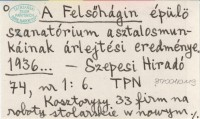 A Felsőhágin épülő
szanatórium asztalosmun-
káinak árlejtési eredménye
1936... — Szepesi Hiradó
74, nr 1: 6. TPN
Kosztorysy 33 firm na
roboty stolarskie w nowym